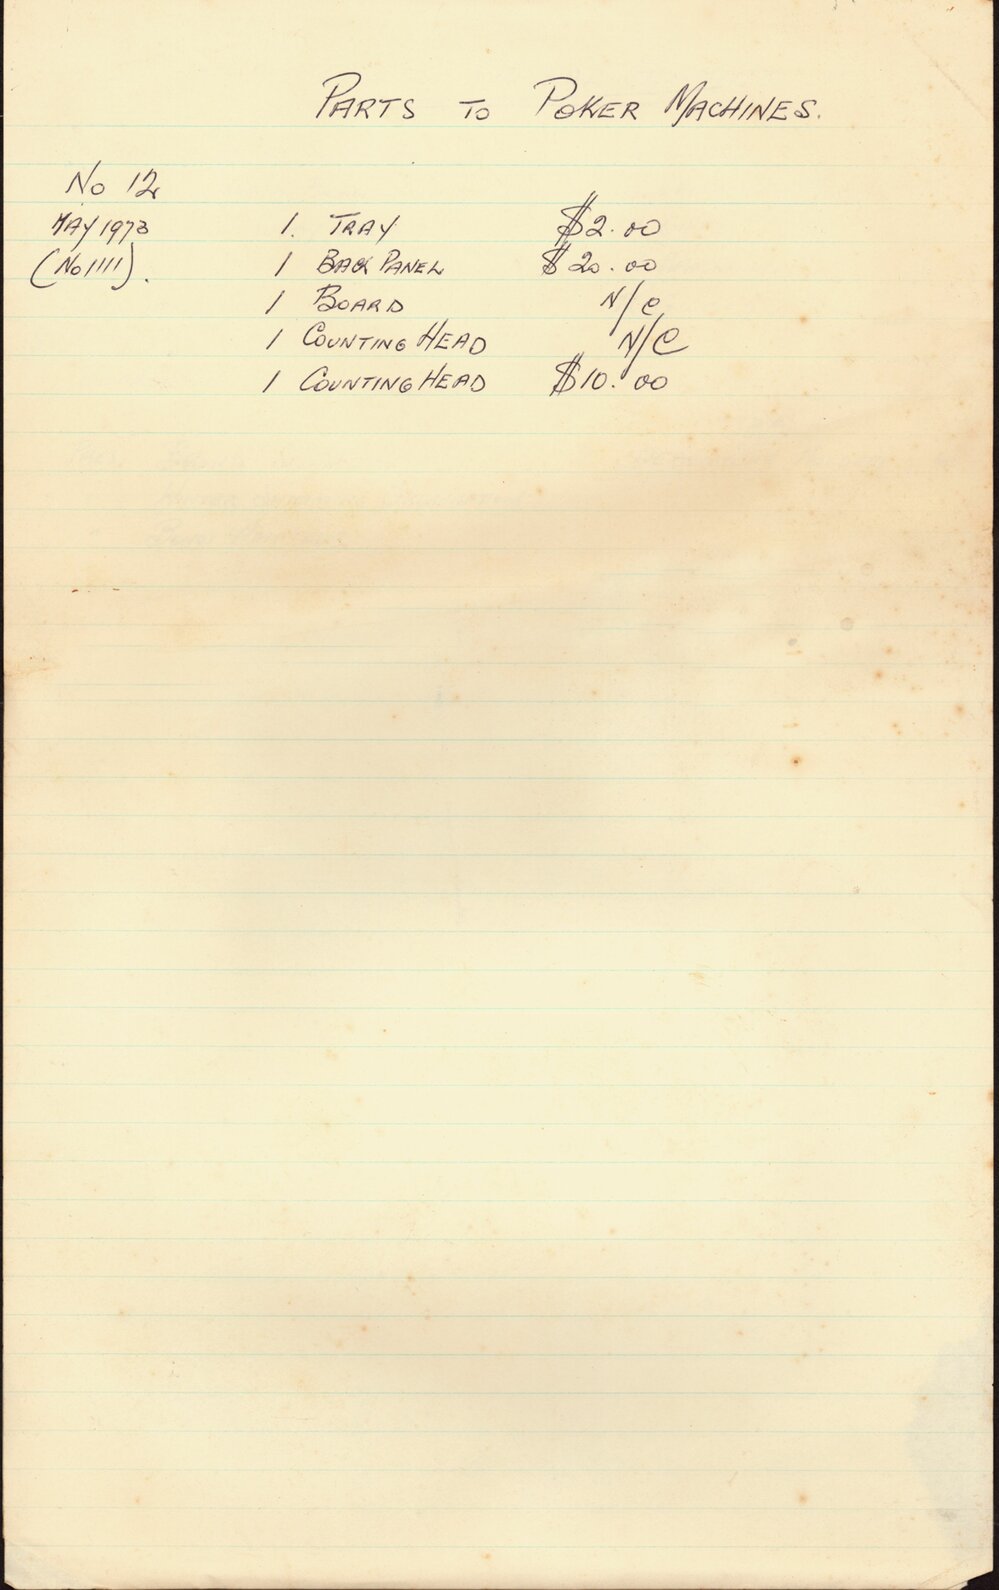 PARTS TO POKER MACHINES.
No 12
MAY 1973 1. TRAY $2.00
(No 1111). 1 BACK PANEL $20.00
1 BOARD N/C
1 COUNTING HEAD N/C
1 COUNTING HEAD $10.00